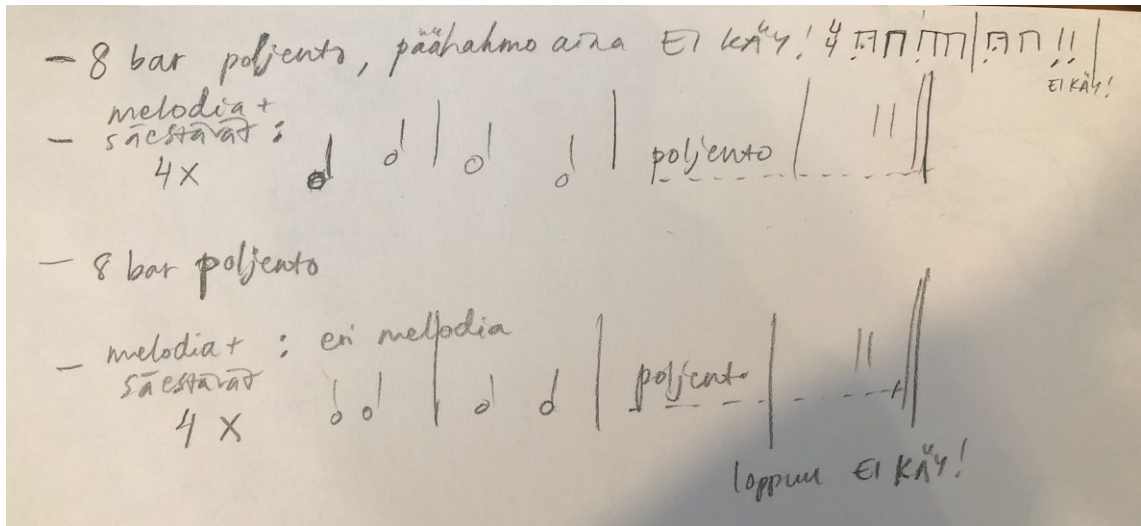 - 8 bar poljento, päähahmo aina EI KÄY! 4/4
EI KÄY!
melodia +
- säestävät :
4 X
poljento
- 8 bar poljento
- melodia + : eri mellodia
säestävät
4 X
poljento
loppuu EI KÄY!